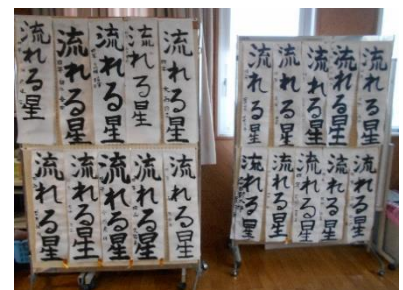 流れる星
流れる星
流れる星
流れる星
流れる星
流れる星
流れる星
流れる星
流れる星
流れる星
流れる星
流れる星
流れる星
流れる星
流れる星
流れる星
流れる星
流れる星
流れる星
流れる星